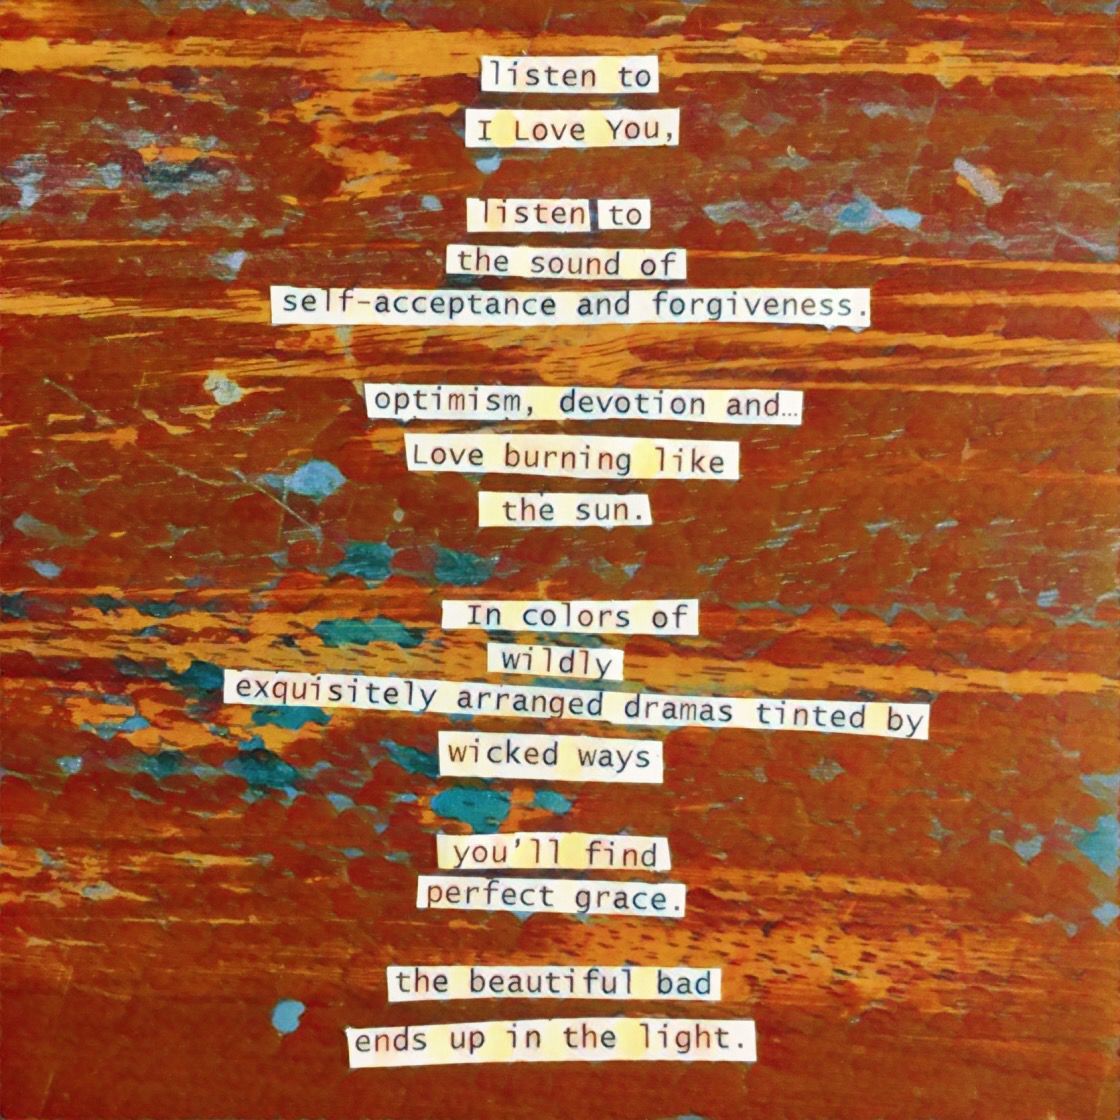 listen to
I Love You,
listen to
the sound of
self-acceptance and forgiveness.
optimism, devotion and…
Love burning like
the sun.
In colors of
wildly
exquisitely arranged dramas tinted by
wicked ways
you'll find
perfect grace.
the beautiful bad
ends up in the light.